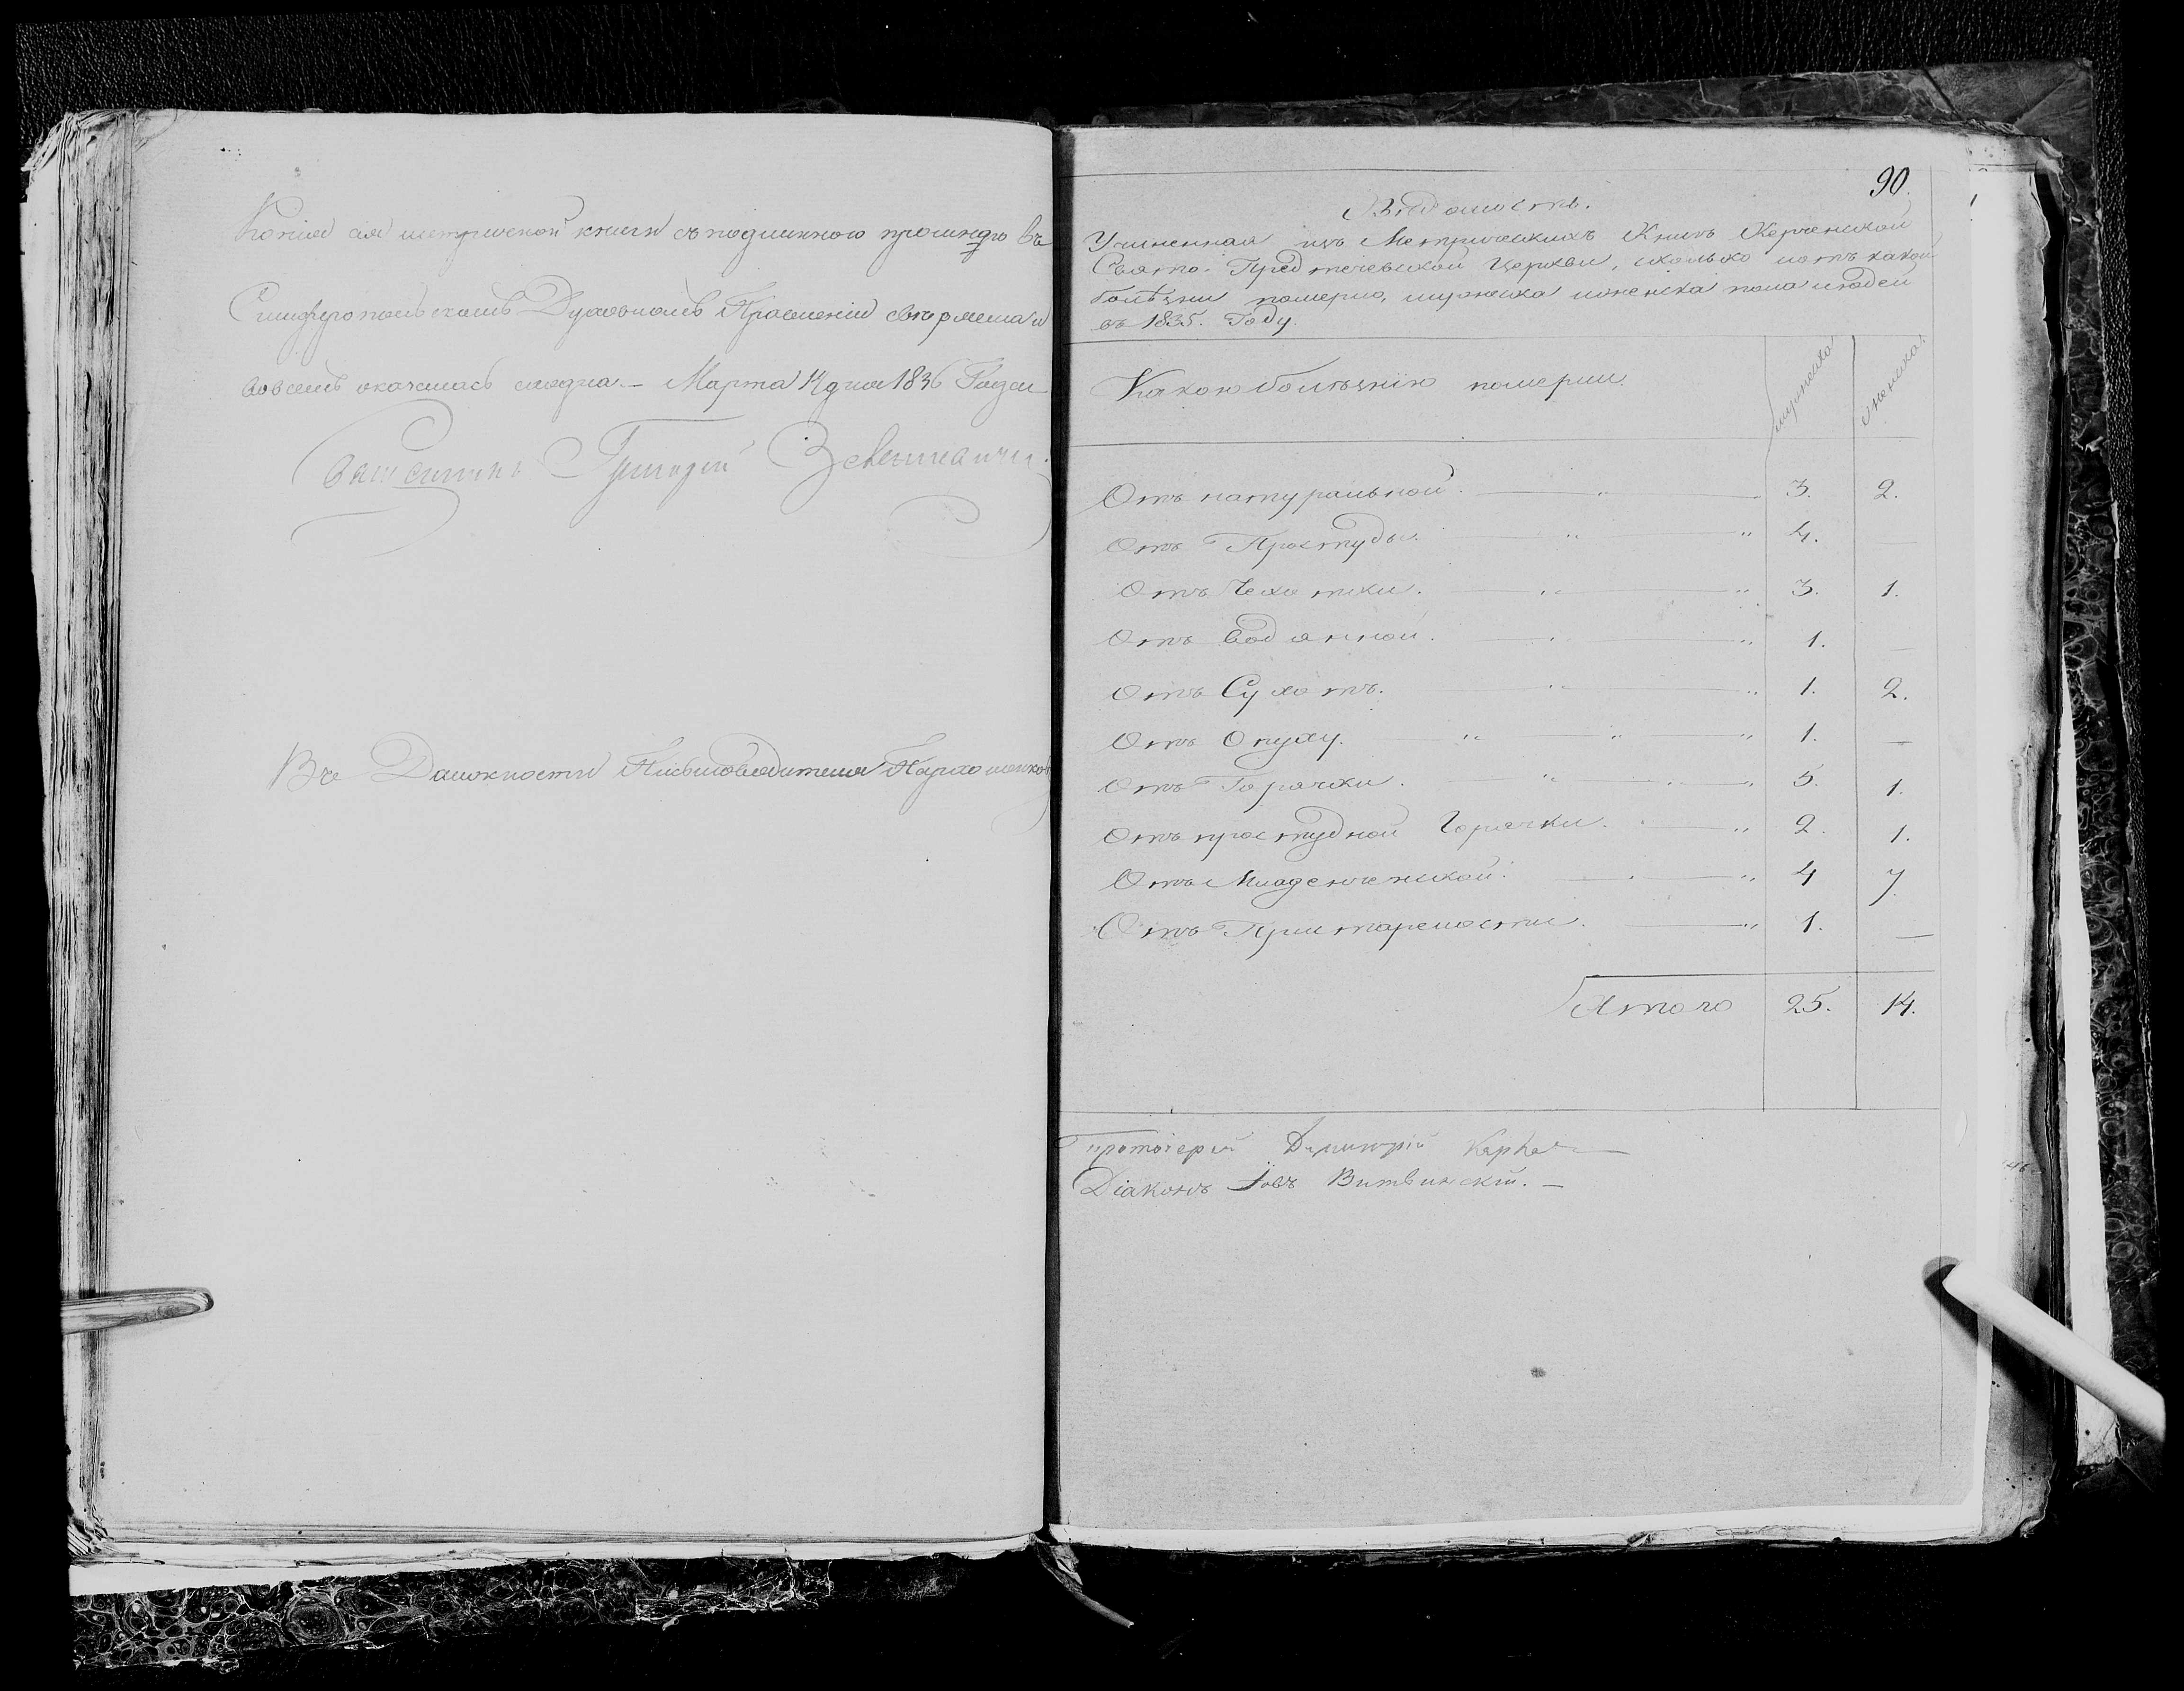 Копия сия метрической книги съ подлинною прошнурою въ
Симферопольскомъ Духовномъ Правленіи свѣрялана и
вовсемъ оказалась сходна. — Марта 14 дня 1836 Года
Григорій
Въ Должности Писмоводителя Пархоменков
90.
Вѣдомость.
Учиненная изъ Метрическихъ Книгъ Керченской
Свято-Предтечевской Церкви, сколько и отъ какой
болѣзни померло, мужеска и женска пола людей
въ 1835. Году.
Какою болѣзнію померли. мужеска женска.
Отъ натуральной. 3. 2.
Отъ Простуды. 4. —
Отъ Чехотки. 3. 1.
Отъ водянной. 1. —
Отъ Сухотъ. 1. 2.
Отъ Опуху. 1. —
Отъ Горячки. 5. 1.
Отъ простудной Горячки. 2. 1.
Отъ Младенческой. 4 7
Отъ Пристарелости. 1. —
Итого 25. 14.
Протоіерей Димитрій
Діаконъ Іовъ Витвинскій. —